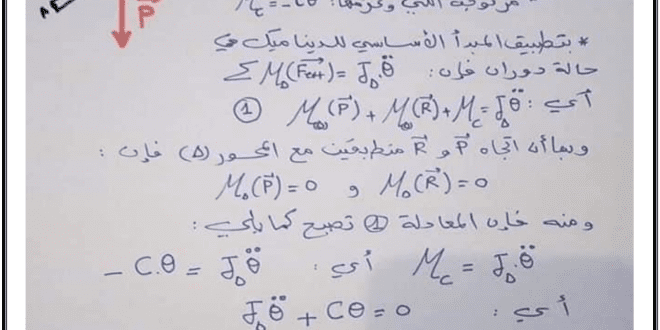 مزدوجة اللي وعزمها: M_c = -Cθ
P⃗
* بتطبيق المبدأ الأساسي للديناميك في
حالة دوران فإن: Σ M_Δ(F⃗ext) = J_Δ.θ̈
أي: M_Δ(P⃗) + M_Δ(R⃗) + M_c = J_Δ θ̈ ①
وبما أن اتجاه P⃗ و R⃗ منطبقين مع المحور (Δ) فإن:
M_Δ(P⃗) = 0 و M_Δ(R⃗) = 0
ومنه فإن المعادلة ① تصبح كما يلي:
M_c = J_Δ.θ̈ أي: - C.θ = J_Δ θ̈
أي: J_Δ θ̈ + Cθ = 0